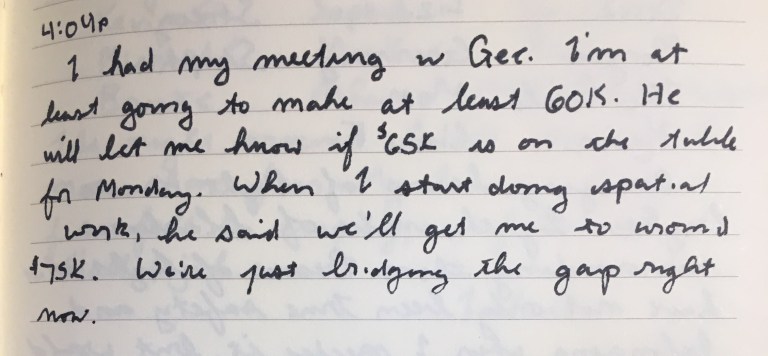 4:04p
I had my meeting w Gee. I'm at
least going to make at least 60K. He
will let me know if $65K is on the table
for Monday. When I start doing spatial
work, he said we'll get me to around
$75K. We're just bridging the gap right
now.